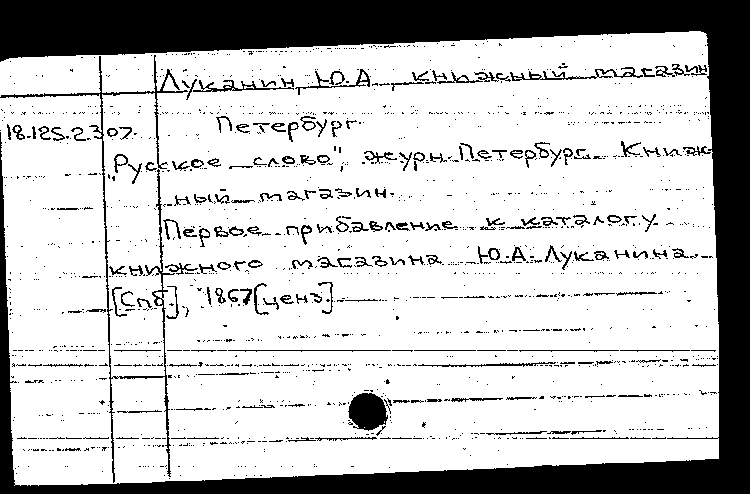 Луканин, Ю.А., книжный магазин
18.125.2307. Петербург.
„Русское слово", журн. Петербург. Книж-
ный магазин.
Первое прибавление к каталогу
книжного магазина Ю.А. Луканина.
[Спб.], 1867 [ценз.]